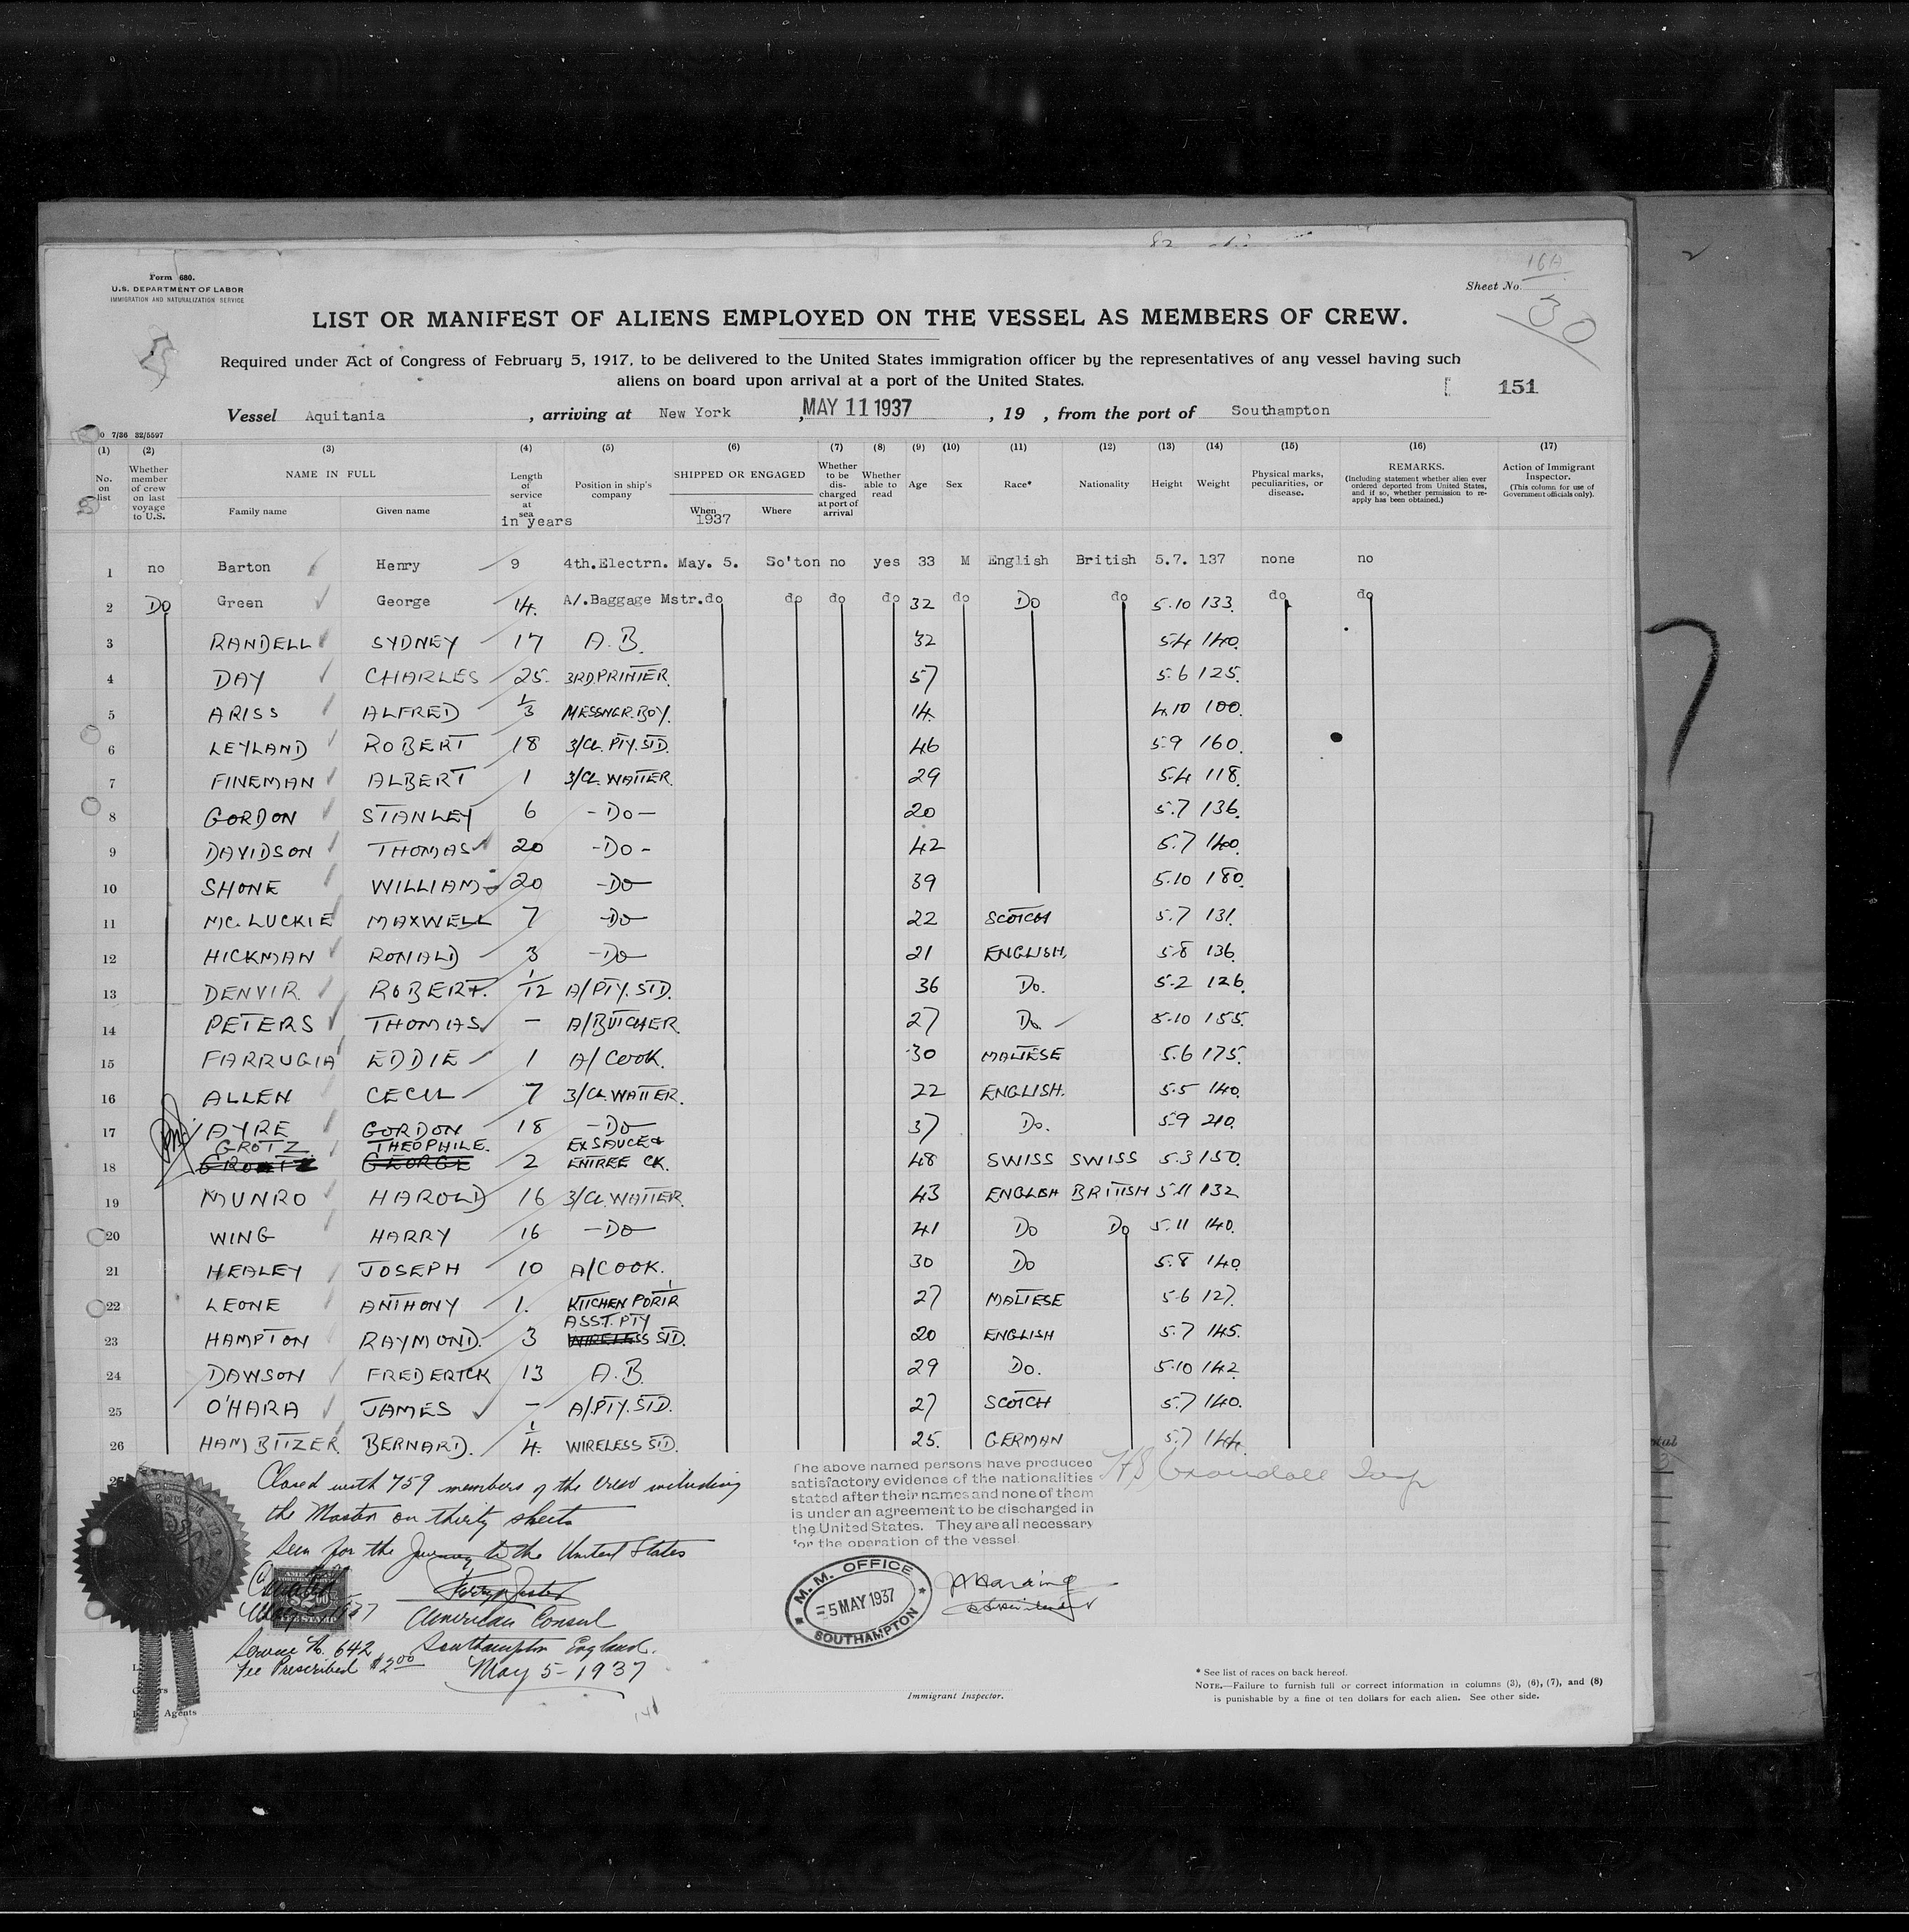 16A
Form 680.
U.S. DEPARTMENT OF LABOR
IMMIGRATION AND NATURALIZATION SERVICE
Sheet No.
30
LIST OR MANIFEST OF ALIENS EMPLOYED ON THE VESSEL AS MEMBERS OF CREW.
Required under Act of Congress of February 5, 1917, to be delivered to the United States immigration officer by the representatives of any vessel having such
aliens on board upon arrival at a port of the United States.
151
Vessel Aquitania, arriving at New York, MAY 11 1937, 19 , from the port of Southampton
7/36 32/5597
(1) (2) (3) (4) (5) (6) (7) (8) (9) (10) (11) (12) (13) (14) (15) (16) (17)
No. on list Whether member of crew on last voyage to U.S. NAME IN FULL Family name Given name Length of service at sea in years Position in ship's company SHIPPED OR ENGAGED When 1937 Where Whether to be discharged at port of arrival Whether able to read Age Sex Race* Nationality Height Weight Physical marks, peculiarities, or disease. REMARKS. (Including statement whether alien ever ordered deported from United States, and if so, whether permission to reapply has been obtained.) Action of Immigrant Inspector. (This column for use of Government officials only).
1 no Barton Henry 9 4th.Electrn. May. 5. So'ton no yes 33 M English British 5.7. 137 none no
2 Do Green George 14. A/.Baggage Mstr. do do do do 32 do Do do 5.10 133. do do
3 RANDELL SYDNEY 17 A.B. 32 5.4 140.
4 DAY CHARLES 25. 3RD.PRINTER. 57 5.6 125.
5 ARISS ALFRED 1/3 MESSNGR.BOY. 14. 4.10 100.
6 LEYLAND ROBERT 18 3/CL. PTY. STD. 46 5.9 160.
7 FINEMAN ALBERT 1 3/CL. WAITER. 29 5.4 118.
8 GORDON STANLEY 6 -DO- 20 5.7 136.
9 DAVIDSON THOMAS 20 -DO- 42 5.7 140.
10 SHONE WILLIAM 20 -DO- 39 5.10 180.
11 MC. LUCKIE MAXWELL 7 -DO- 22 SCOTCH 5.7 131.
12 HICKMAN RONALD 3 -DO- 21 ENGLISH, 5.8 136.
13 DENVIR. ROBERT. 1/12 A/PTY. STD. 36 Do. 5.2 126.
14 PETERS THOMAS - A/BUTCHER. 27 Do. 5.10 155.
15 FARRUGIA EDDIE 1 A/COOK. 30 MALTESE 5.6 175.
16 ALLEN CECIL 7 3/CL. WAITER. 22 ENGLISH. 5.5 140.
17 AYRE GORDON 18 -DO- 37 Do. 5.9 210.
GROTZ THEOPHILE. EX SAUCE &
18 GEORGE 2 ENTREE CK. 48 SWISS SWISS 5.3 150.
19 MUNRO HAROLD 16 3/CL. WAITER. 43 ENGLISH BRITISH 5.11 132
20 WING HARRY 16 -DO- 41 Do Do 5.11 140.
21 HEALEY JOSEPH 10 A/COOK. 30 Do 5.8 140.
22 LEONE ANTHONY 1. KITCHEN PORTR 27 MALTESE 5.6 127.
ASST. PTY
23 HAMPTON RAYMOND. 3 WIRELESS STD. 20 ENGLISH 5.7 145.
24 DAWSON FREDERICK 13 A.B. 29 Do. 5.10 142.
25 O'HARA JAMES - A/PTY. STD. 27 SCOTCH 5.7 140.
26 HAMBITZER BERNARD. 1/4. WIRELESS STD. 25. GERMAN 5.7 144.
Closed with 759 members of the crew including
the Master on thirty sheets
Seen for the Journey to the United States
American Consul
Southampton England.
May 5-1937
Service No. 642
Fee Prescribed $2.00
The above named persons have produced
satisfactory evidence of the nationalities
stated after their names and none of them
is under an agreement to be discharged in
the United States. They are all necessary
for the operation of the vessel.
M.M. OFFICE
5 MAY 1937
SOUTHAMPTON
Immigrant Inspector.
* See list of races on back hereof.
NOTE.—Failure to furnish full or correct information in columns (3), (6), (7), and (8)
is punishable by a fine of ten dollars for each alien. See other side.
Agents